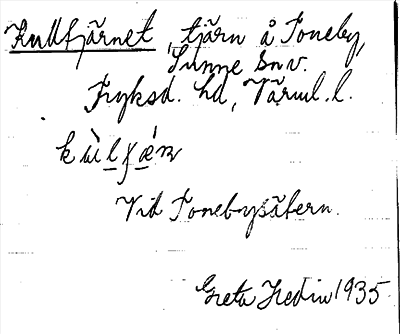 Kulltjärnet, tjärn å Toneby,
Sunne snv.
Fryksd. hd, Värml. l.
Vid Tonebysätern.
Greta Hedin 1935